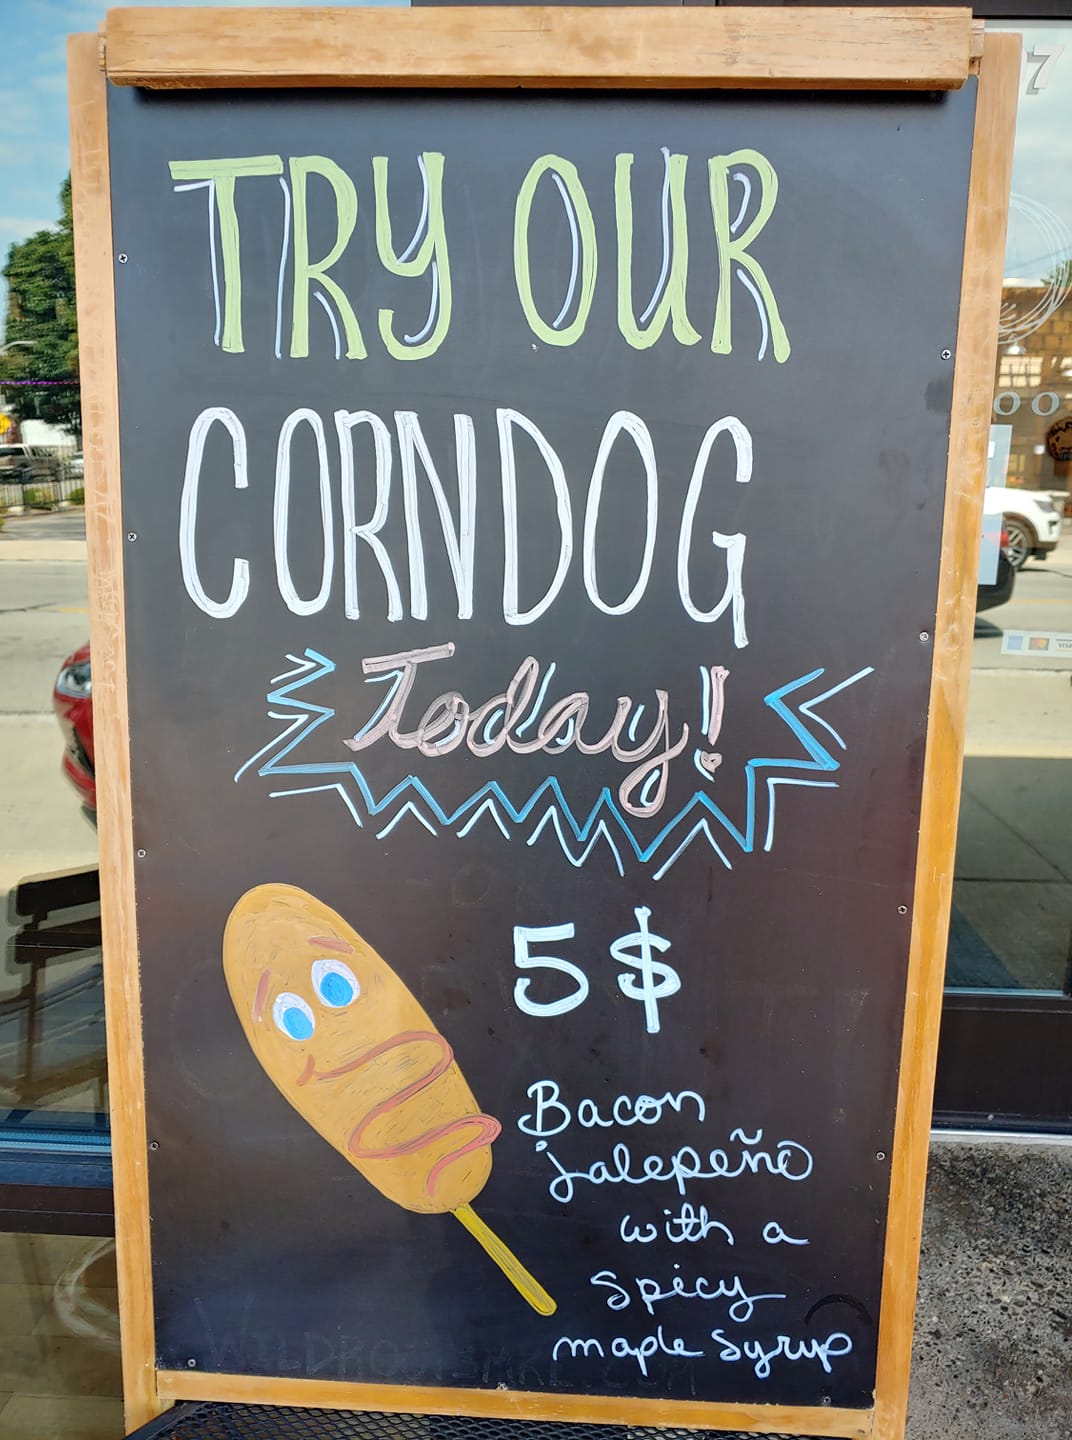 TRY OUR
CORNDOG
Today!
5$
Bacon
jalepeño
with a
spicy
maple syrup